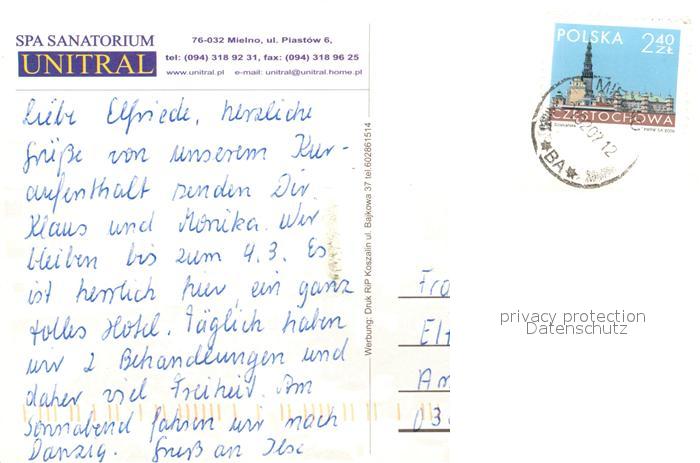 SPA SANATORIUM
UNITRAL
76-032 Mielno, ul. Piastów 6,
tel: (094) 318 92 31, fax: (094) 318 96 25
www.unitral.pl e-mail: unitral@unitral.home.pl
Liebe Elfriede, herzliche
Grüße von unserem Kur-
aufenthalt senden Dir
Klaus und Monika. Wir
bleiben bis zum 4.3. Es
ist herrlich hier, ein ganz
tolles Hotel. Täglich haben
wir 2 Behandlungen und
daher viel Freiheit. Am
Sonnabend fahren wir nach
Danzig. Gruß an Ilse
Werbung: Druk RiP Koszalin ul. Bajkowa 37 tel.602861514
POLSKA 2 40
ZŁ
CZĘSTOCHOWA
BA
Fra
Elf
Am
03
privacy protection
Datenschutz